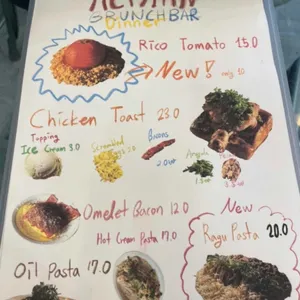 BRUNCHBAR
Dinner
Rico Tomato 15.0
New!
Chicken Toast 23.0
Topping
Ice Cream 3.0
Scrambled
Bacons
Omelet Bacon 12.0
Hot Cream Pasta 17.0
New
Ragu Pasta 20.0
Oil Pasta 17.0